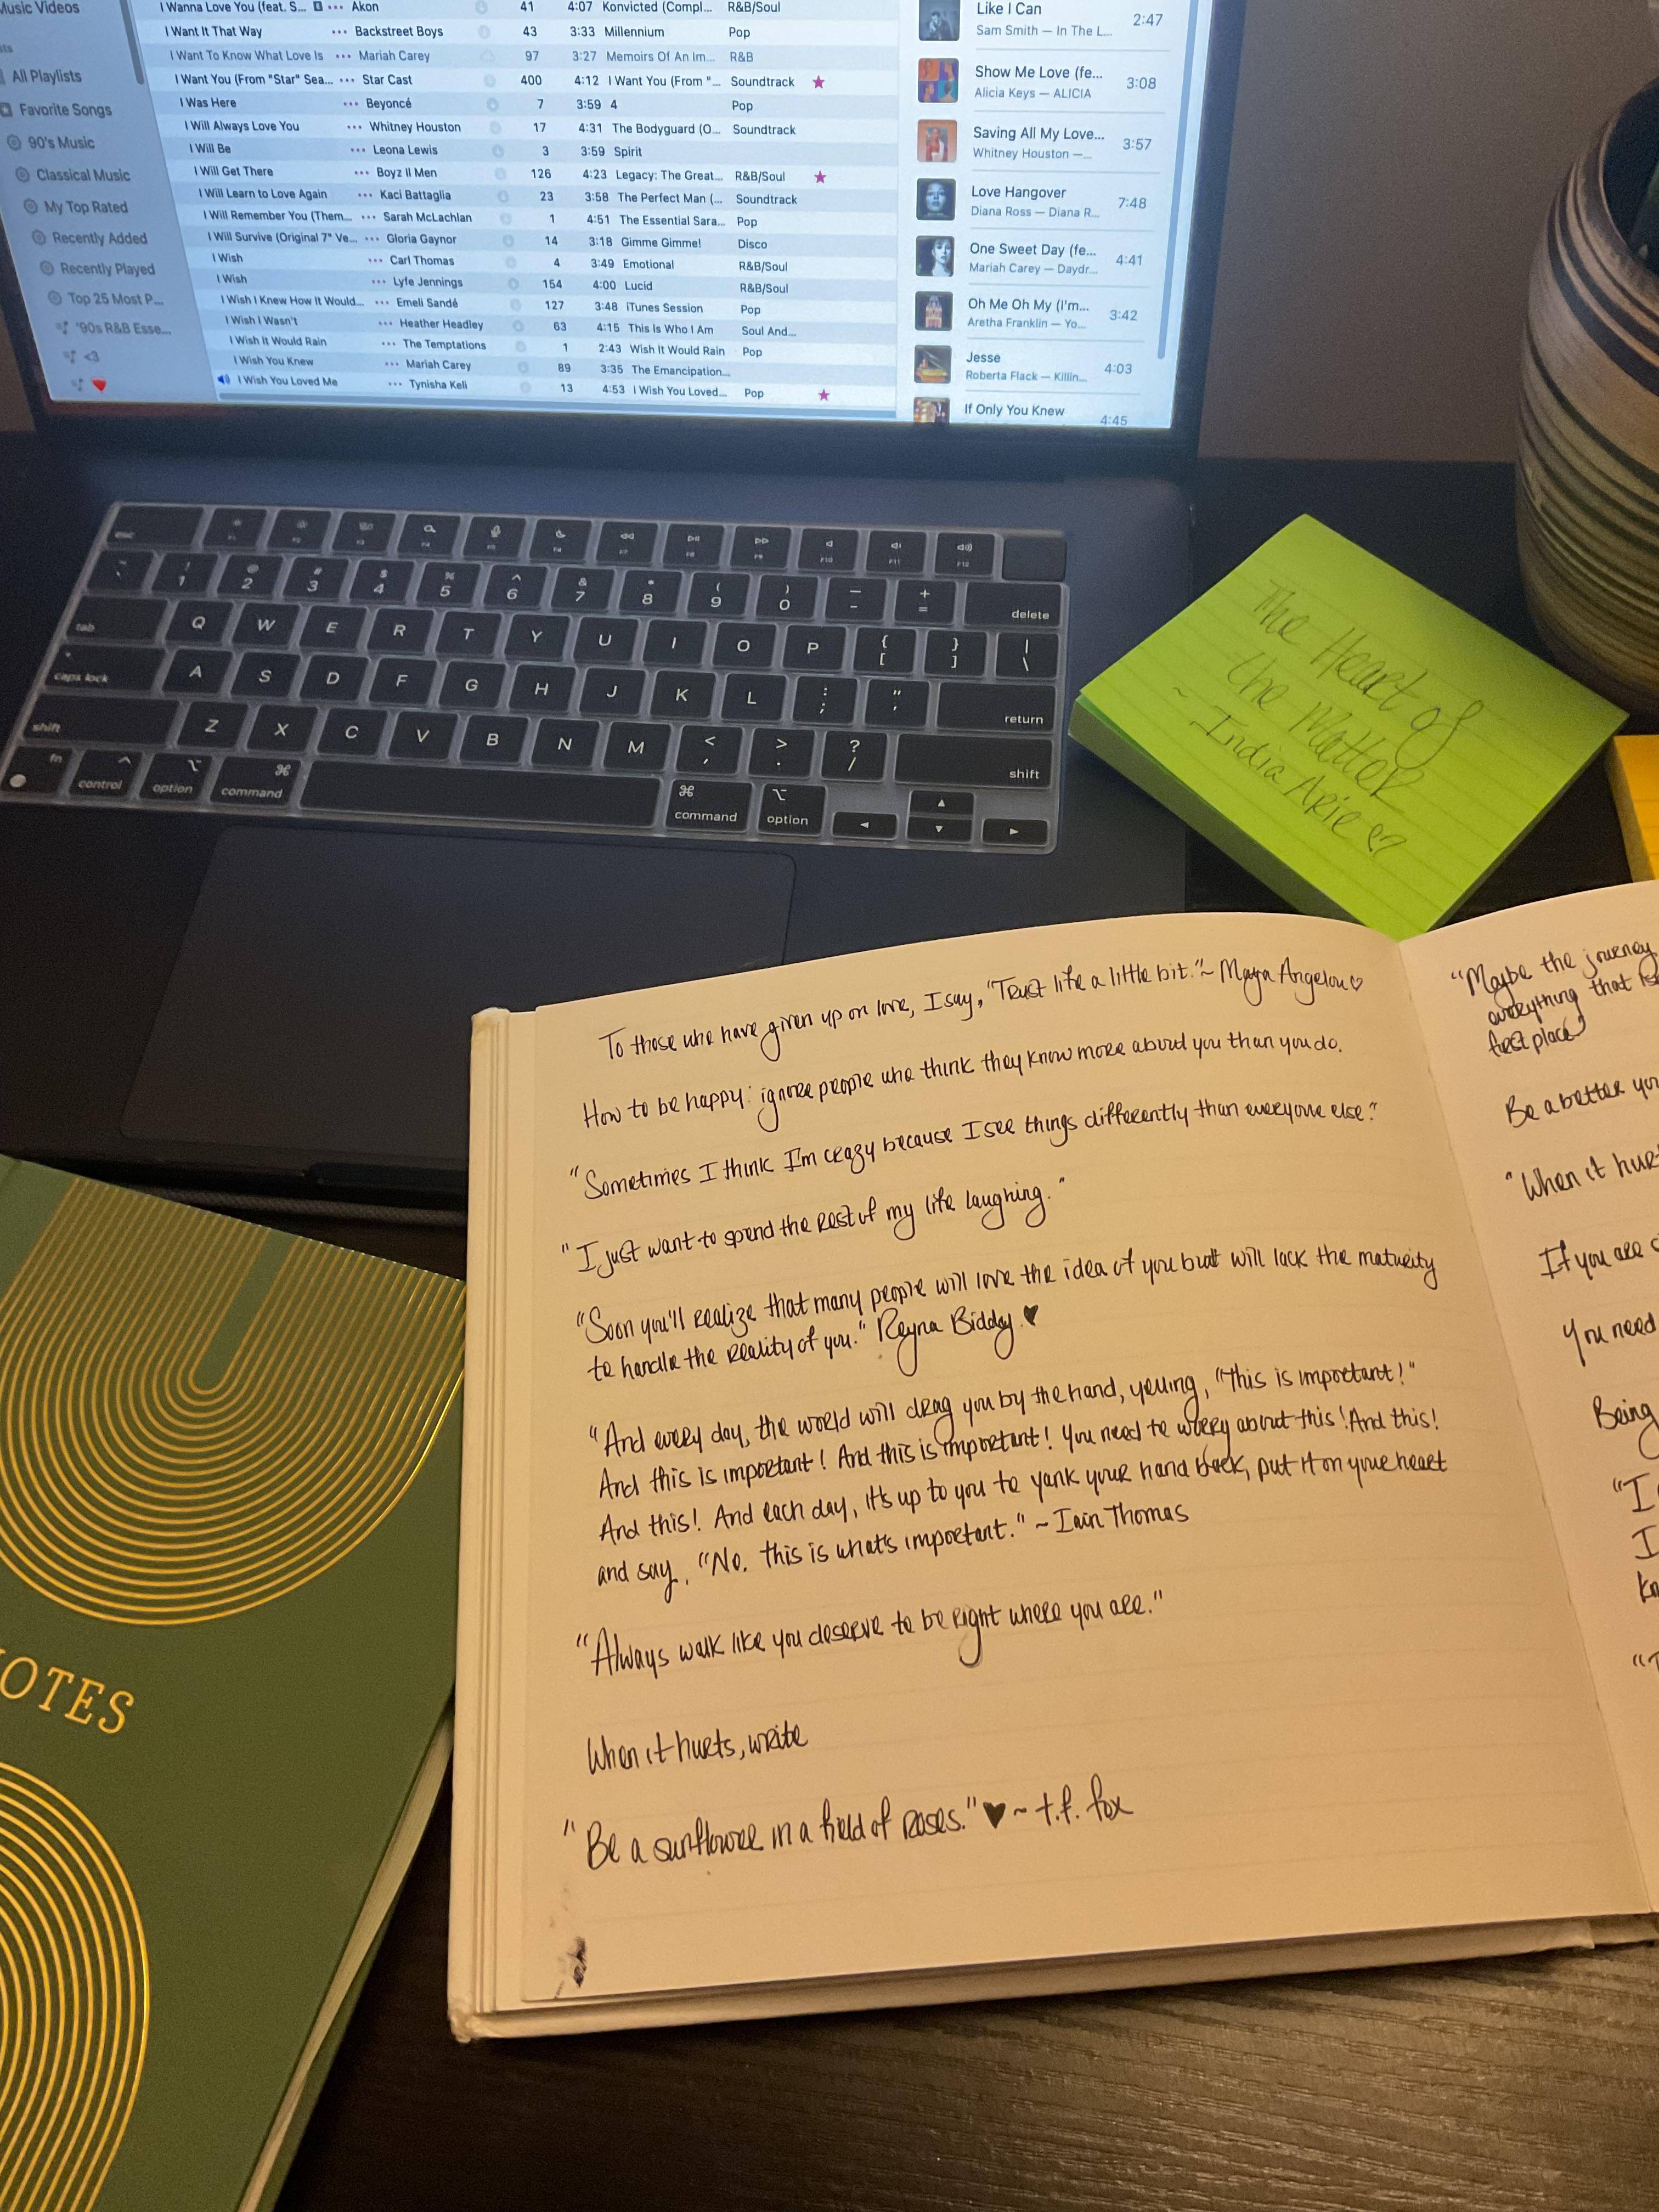 Music Videos
All Playlists
Favorite Songs
90's Music
Classical Music
My Top Rated
Recently Added
Recently Played
Top 25 Most P...
'90s R&B Esse...
<3
❤️
I Wanna Love You (feat. S... ••• Akon 41 4:07 Konvicted (Compl... R&B/Soul
I Want It That Way ••• Backstreet Boys 43 3:33 Millennium Pop
I Want To Know What Love Is ••• Mariah Carey 97 3:27 Memoirs Of An Im... R&B
I Want You (From "Star" Sea... ••• Star Cast 400 4:12 I Want You (From "... Soundtrack ★
I Was Here ••• Beyoncé 7 3:59 4 Pop
I Will Always Love You ••• Whitney Houston 17 4:31 The Bodyguard (O... Soundtrack
I Will Be ••• Leona Lewis 3 3:59 Spirit
I Will Get There ••• Boyz II Men 126 4:23 Legacy: The Great... R&B/Soul ★
I Will Learn to Love Again ••• Kaci Battaglia 23 3:58 The Perfect Man (... Soundtrack
I Will Remember You (Them... ••• Sarah McLachlan 1 4:51 The Essential Sara... Pop
I Will Survive (Original 7" Ve... ••• Gloria Gaynor 14 3:18 Gimme Gimme! Disco
I Wish ••• Carl Thomas 4 3:49 Emotional R&B/Soul
I Wish ••• Lyfe Jennings 154 4:00 Lucid R&B/Soul
I Wish I Knew How It Would... ••• Emeli Sandé 127 3:48 iTunes Session Pop
I Wish I Wasn't ••• Heather Headley 63 4:15 This Is Who I Am Soul And...
I Wish It Would Rain ••• The Temptations 1 2:43 Wish It Would Rain Pop
I Wish You Knew ••• Mariah Carey 89 3:35 The Emancipation...
I Wish You Loved Me ••• Tynisha Keli 13 4:53 I Wish You Loved... Pop ★
Like I Can 2:47
Sam Smith — In The L...
Show Me Love (fe... 3:08
Alicia Keys — ALICIA
Saving All My Love... 3:57
Whitney Houston —...
Love Hangover 7:48
Diana Ross — Diana R...
One Sweet Day (fe... 4:41
Mariah Carey — Daydr...
Oh Me Oh My (I'm... 3:42
Aretha Franklin — Yo...
Jesse 4:03
Roberta Flack — Killin...
If Only You Knew 4:45
esc F1 F2 F3 F4 F5 F6 F7 F8 F9 F10 F11 F12
~ ` ! 1 @ 2 # 3 $ 4 % 5 ^ 6 & 7 * 8 ( 9 ) 0 — - + = delete
tab Q W E R T Y U I O P { [ } ] | \
caps lock A S D F G H J K L : ; " ' return
shift Z X C V B N M < , > . ? / shift
fn control option command command option
The Heart of
the Matter
~ India Arie ♡
To those who have given up on love, I say, "Trust life a little bit." ~ Maya Angelou ♡
How to be happy: ignore people who think they know more about you than you do.
"Sometimes I think I'm crazy because I see things differently than everyone else."
"I just want to spend the rest of my life laughing."
"Soon you'll realize that many people will love the idea of you but will lack the maturity
to handle the reality of you." Reyna Biddy. ♥
"And every day, the world will drag you by the hand, yelling, "This is important!"
And this is important! And this is important! You need to worry about this! And this!
And this! And each day, it's up to you to yank your hand back, put it on your heart
and say, "No. this is what's important." ~ Iain Thomas
"Always walk like you deserve to be right where you are."
When it hurts, write
"Be a sunflower in a field of roses." ♥ ~ t.f. fox
"Maybe the journey
everything that is
first place"
Be a better you
"When it hurt
If you are
You need
Being
"I
I
OTES